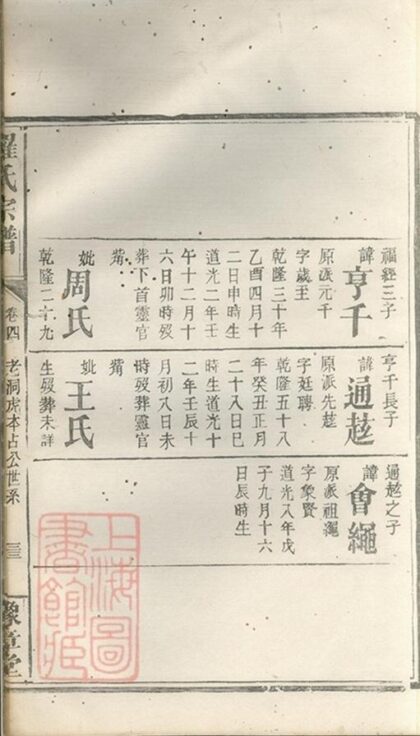 福經三子
諱亨千
原派元千
字歲
乾隆三十年
乙酉四月十
二日申時生
道光二年壬
午十二月十
六日卯時歿
葬下首靈官
觜
妣周氏
乾隆二十九
亨千長子
諱通越
原派先越
字廷聘
乾隆五十八
年癸丑正月
二十八日巳
時生道光十
二年壬辰十
月初八日未
時歿葬靈官
觜
妣王氏
生歿葬未詳
通越之子
諱會繩
原派祖繩
字象賢
道光八年戊
子九月十六
日辰時生
羅氏宗譜
卷四
老洞虎本占公世系
豫章堂
上海圖
書館藏